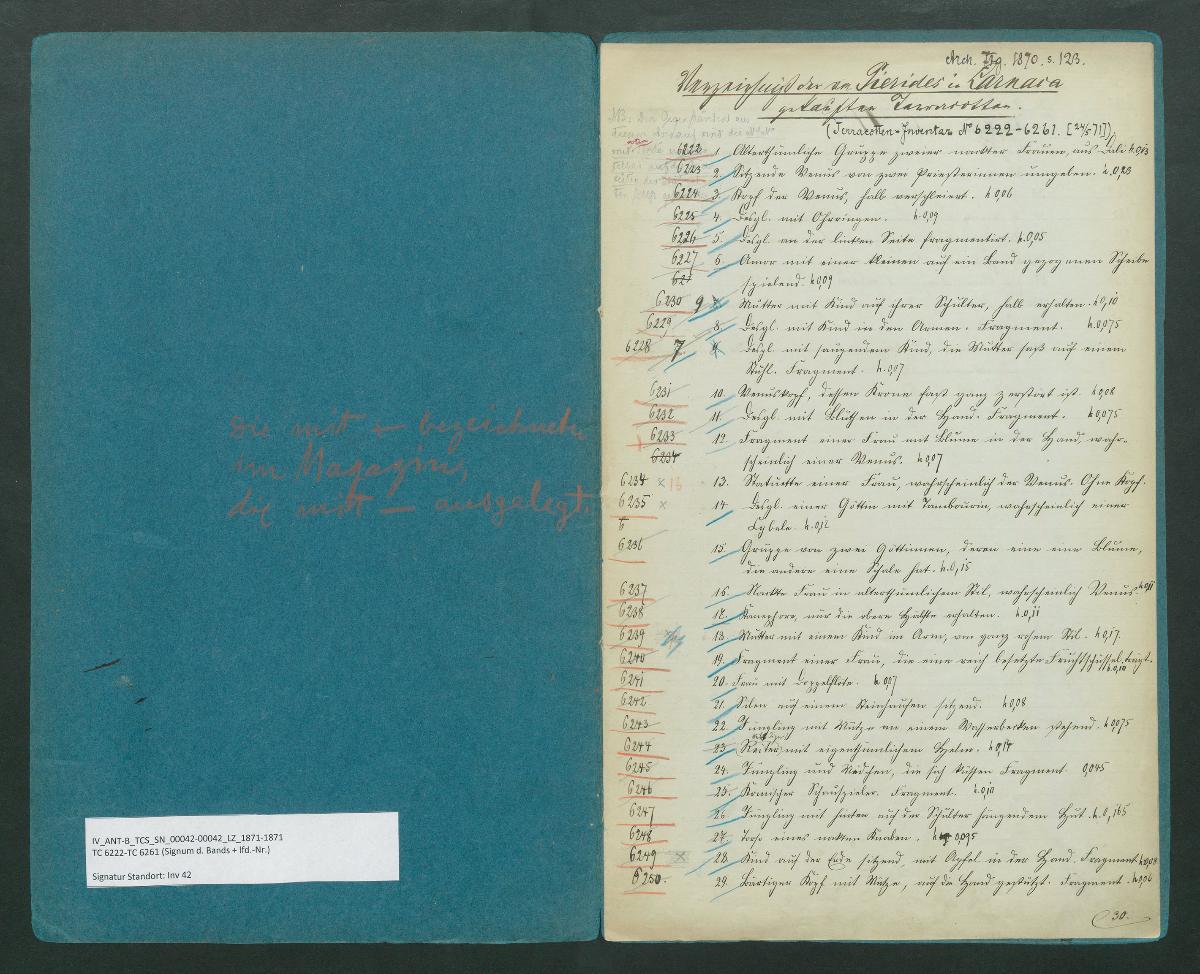 die mit + bezeichneten
im Magazin,
die mit — ausgelegt.
IV_ANT-B_TCS_SN_00042-00042_LZ_1871-1871
TC 6222-TC 6261 (Signum d. Bands + lfd.-Nr.)
Signatur Standort: Inv 42
Arch. Ztg. 1870. s. 123.
Verzeichniß der von Pierides in Larnaca
gekauften Terracotten.
(Terracotten-Inventar No 6222-6261. [24/5 71])
NB: Die
6222 1. Alterthümliche Gruppe zweier nackter Frauen, aus h. 0,13
6223 2. Sitzende Venus von zwei Priesterinnen umgeben. h. 0,23
6224 3. Kopf der Venus, halb verschleiert. h. 0,06
6225 4. Desgl. mit Ohrringen. h. 0,09
6226 5. Desgl. an der linken Seite fragmentirt. h. 0,05
6227 6. Amor mit einer kleinen auf ein Band gezogenen Scheibe
62
spielend. h. 0,09
6230 9 7. Mutter mit Kind auf ihrer Schulter, halb erhalten. h. 0,10
6229 8. Desgl. mit Kind in den Armen. Fragment. h. 0,075
6228 7 9. Desgl. mit saugendem Kind, die Mutter saß auf einem
Stuhl. Fragment. h. 0,07
6231 10. Venuskopf, dessen Krone fast ganz zerstört ist. h. 0,08
6232 11. Desgl. mit Blüthen in der Hand. Fragment. h. 0,075
6233 12. Fragment einer Frau mit Blume in der Hand, wahr-
6234
scheinlich einer Venus. h. 0,07
6234 × 13 13. Statuette einer Frau, wahrscheinlich der Venus. Ohne Kopf.
6235 × 14. Desgl. einer Göttin mit Tambourin, wahrscheinlich einer
6
Cybele. h. 0,12
6236 15. Gruppe von zwei Göttinnen, deren eine eine Blume,
die andere eine Schale hat. h. 0,15
6237 16. Nackte Frau in alterthümlichem Stil, wahrscheinlich Venus. h. 0,11
6238 17. Kanephore, nur die obere Hälfte erhalten. h. 0,11
6239 18. Mutter mit einem Kind im Arm, von ganz rohem Stil. h. 0,17.
6240 19. Fragment einer Frau, die eine reich besetzte Fruchtschüssel trägt. h. 0,10
6241 20. Frau mit Doppelflöte. h. 0,07
6242 21. Silen auf einem Steinhaufen sitzend. h. 0,08
6243 22. Jüngling mit Mütze an einem Wasserbecken stehend. h. 0,075
6244 23. Reiter mit eigenthümlichem Helm. h. 0,14
6245 24. Jüngling und Mädchen, die sich küssen Fragment. 0,045
6246 25. Komischer Schauspieler. Fragment. h. 0,10
6247 26. Jüngling mit hinten auf der Schulter hängendem Hut. h. 0,165
6248 27. Torso eines nackten Knaben. h. 0,095
6249 × 28. Kind auf der Erde sitzend, mit Apfel in der Hand. Fragment h. 0,08
6250. 29. Bärtiger Kopf mit Mütze, auf die Hand gestützt. Fragment. h. 0,06
30.